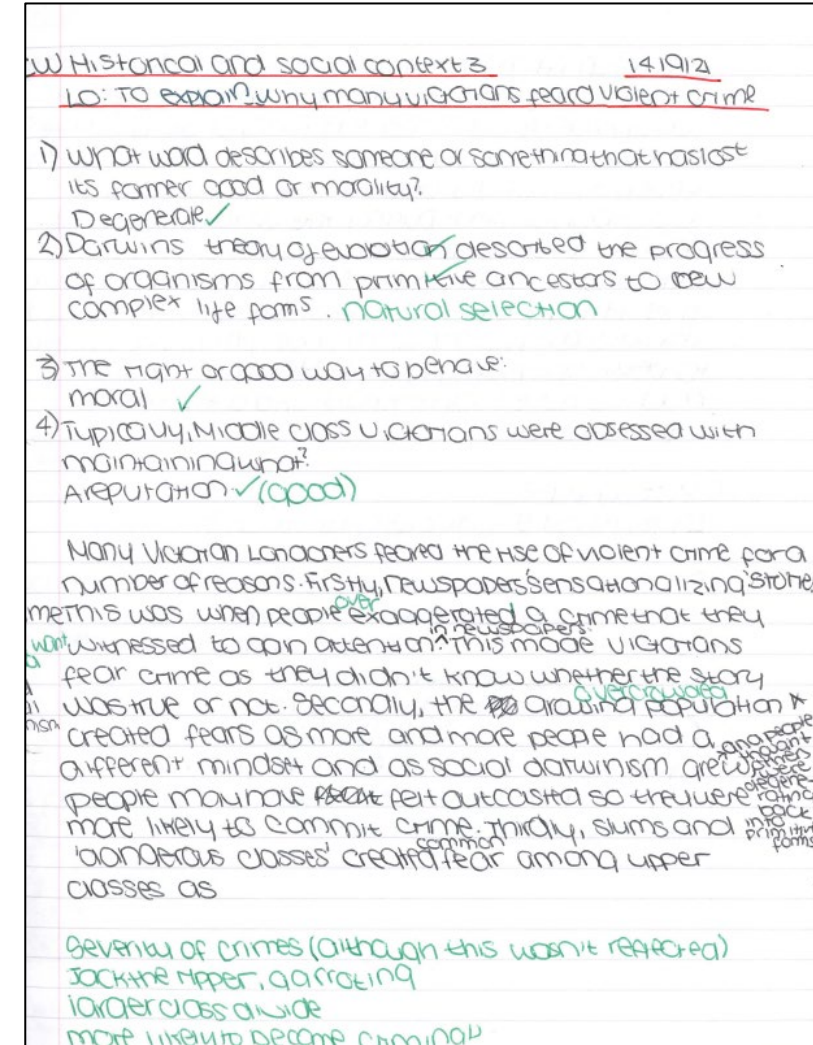 CW Historical and social context 3 14/9/21
LO: To explain why many victorians feard violent crime
1) What word describes someone or something that has lost
its former good or morality?
Degenerate ✓
2) Darwins theory of evolution described the progress
of organisms from primitive ancestors to new
complex life forms. natural selection
3) The right or good way to behave:
moral ✓
4) Typically, Middle class victorians were obsessed with
maintaining what?
A reputation ✓ (good)
Many Victorian Londoners feared the rise of violent crime for a
number of reasons. Firstly, newspapers 'sensationalizing' storie
This was when people over exaggerated a crime that they
witnessed to gain attention ^ in newspapers. This made victorians
fear crime as they didn't know whether the story
was true or not. Secondly, the growing overcrowded population *
created fears as more and more people had a
different mindset and as social darwinism grew
people may have felt outcasted so they were
more likely to commit crime. Thirdly, slums and
'dangerous classes' created common fear among upper
classes as
* and people
thought
were
degene-
rating
back
into
primitive
forms
Severity of crimes (although this wasn't reflected)
Jack the ripper, garroting
larger class divide
more likely to become criminals